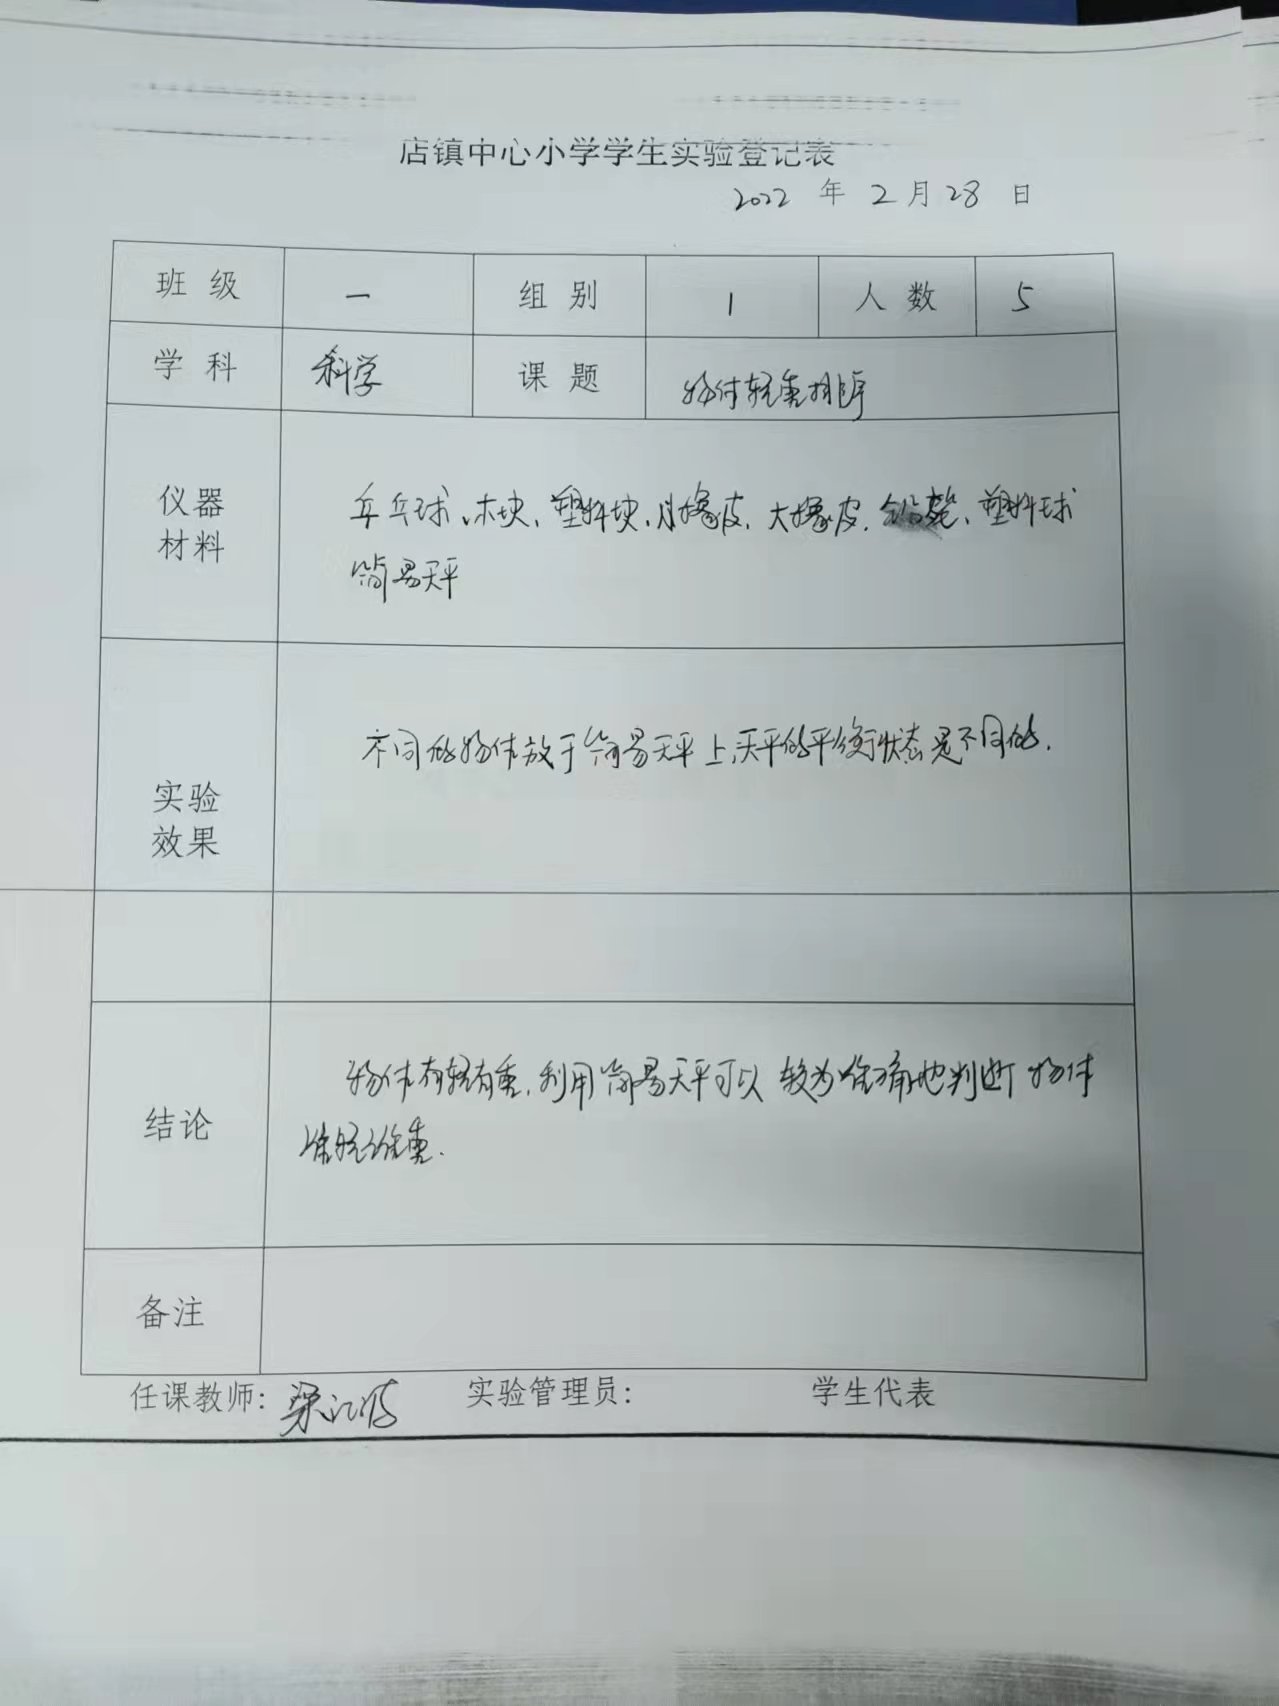 店镇中心小学学生实验登记表
2022 年 2 月 28 日
班 级 一 组 别 1 人 数 5
学 科 科学 课 题 物体轻重排序
仪器
材料
乒乓球、木块、塑料块、小橡皮、大橡皮、、塑料球
简易天平
实验
效果
不同的物体放于简易天平上,天平的平衡状态是不同的.
结论
物体有轻有重,利用简易天平可以较为准确地判断物体
谁轻谁重.
备注
任课教师: 梁 实验管理员: 学生代表